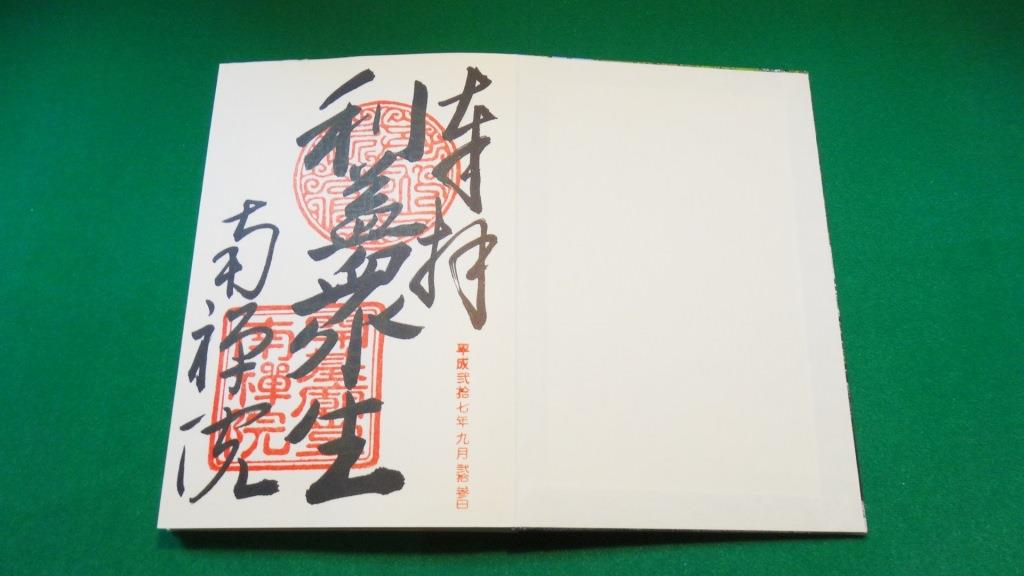 奉拝
平成弐拾七年九月弐拾参日
利益衆生
南禅院
南禅院